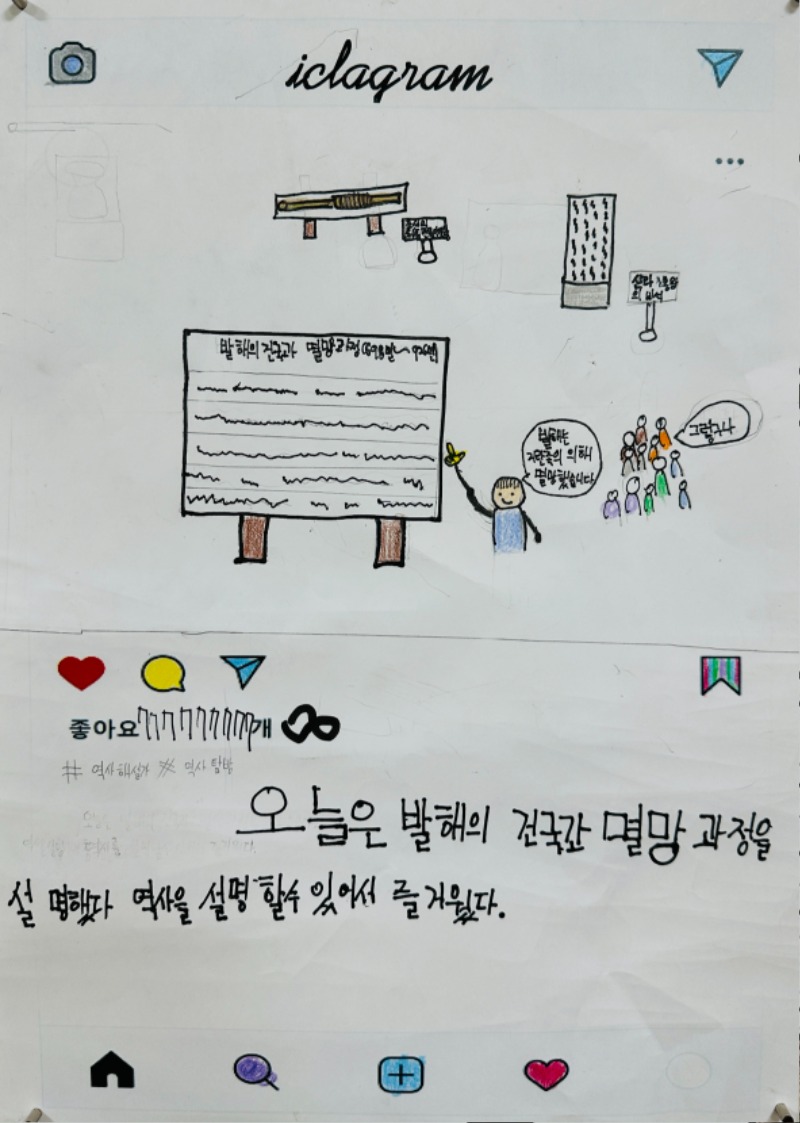 iclagram
신라
의 비석
발해의 건국과 멸망과정(698년~926년)
발해는
거란족의 의해
멸망했습니다
그렇구나
좋아요 777777777개
# 역사해설가 # 역사 탐방
오늘은 발해의 건국간 멸망 과정을
설명했다 역사을 설명 할수 있어서 즐거웠다.